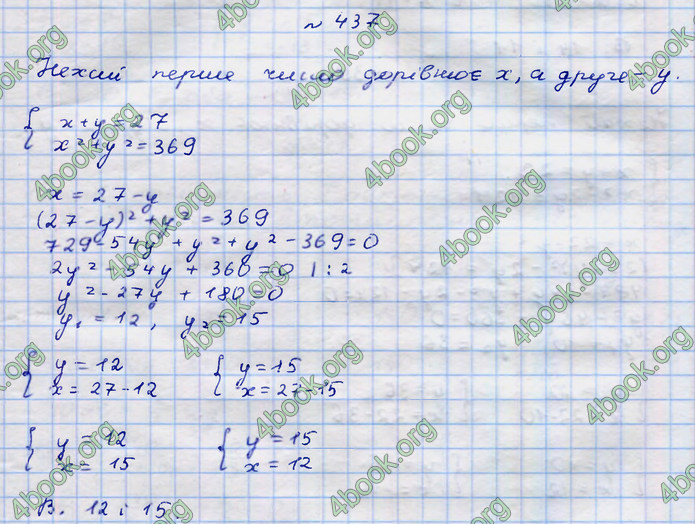 № 437
Нехай перше число дорівнює x, а друге – y.
{ x + y = 27
x² + y² = 369
x = 27 – y
(27 – y)² + y² = 369
729 – 54y + y² + y² – 369 = 0
2y² – 54y + 360 = 0 | : 2
y² – 27y + 180 = 0
y₁ = 12, y₂ = 15
{ y = 12 { y = 15
x = 27 – 12 x = 27 – 15
{ y = 12 { y = 15
x = 15 x = 12
В. 12 і 15
4book.org